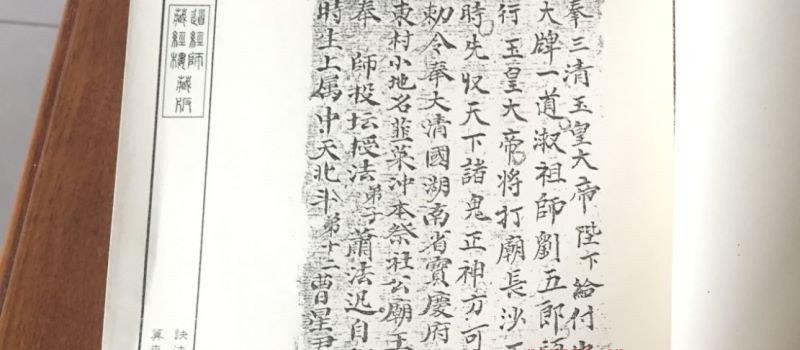 奉三清玉皇大帝陛下給付
大牌一道淑祖師劉五郎
行玉皇大帝将打廟長沙王
時先収天下諸鬼正神方可
勅令奉大清國湖南省寶慶府
東村小地名韮菜沖本祭社公廟王
奉師投坛授法弟子蕭法迟自
時生上属中天北斗弟十二曹星君
道經師
藏經樓藏版
訣法
算